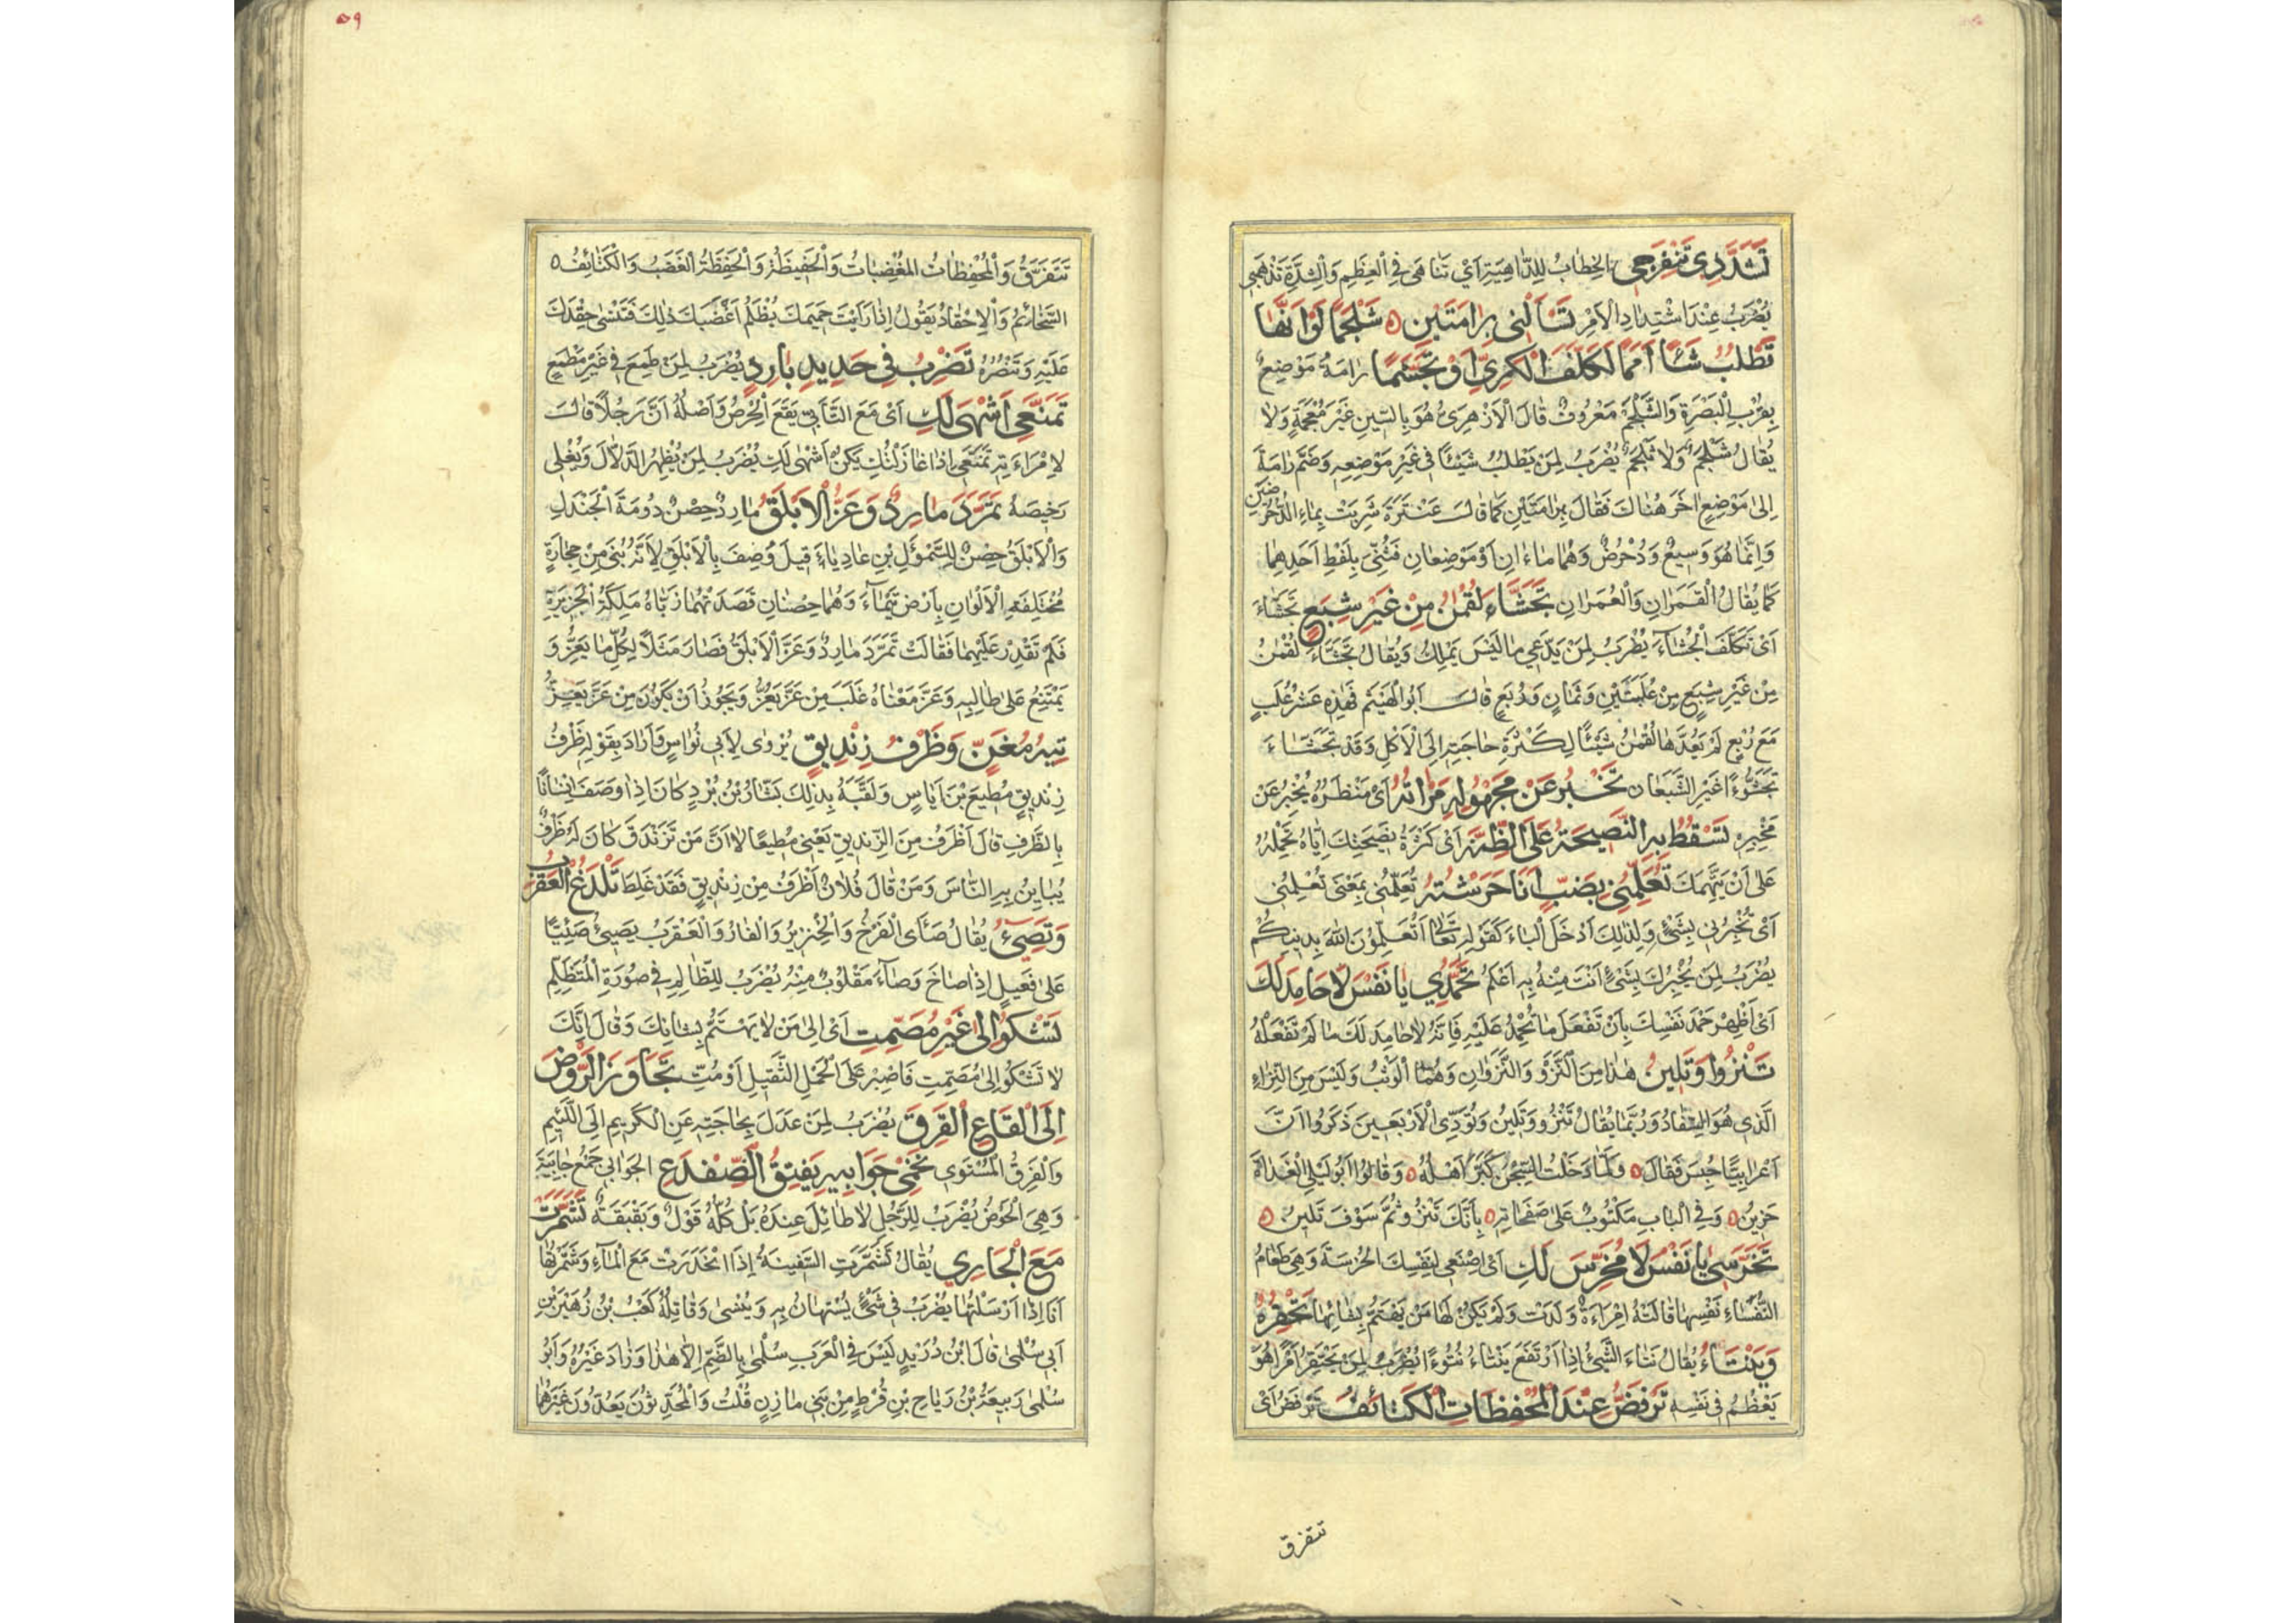 تَشَدَّدِي تَنْفَرِجِي الخِطَابُ لِلدَّاهِيَةِ اَيْ تَنَاهَي فِي الْعِظَمِ وَالشِّدَّةِ تَذْهَبِي
يُضْرَبُ عِنْدَ اشْتِدَادِ الْاَمْرِ تَسْأَلُنِي بِرَامَتَيْنِ ٥ شَلْجَمًا لَوْ اَنَّهَا
تَطْلُبُ شَئًا اَمَمًا لَكَلَّفَ الْكَرِيَّ اَوْ تَجَشَّمَا رَامَةُ مَوْضِعٌ
بِقُرْبِ الْبَصْرَةِ وَالشَّلْجَمُ مَعْرُوفٌ قَالَ الْاَزْهَرِىُّ هُوَ بِالسِّينِ غَيْرَ مُعْجَمَةٍ وَلَا
يُقَالُ شَلْجَمٌ وَلَا ثَلْجَمٌ يُضْرَبُ لِمَنْ يَطْلُبُ شَيْئًا فِى غَيْرِ مَوْضِعِهِ وَضَمَّ رَامَةَ
اِلَى مَوْضِعٍ اٰخَرَ هُنَاكَ فَقَالَ بِرَامَتَيْنِ كَمَا قَالَ عَنْتَرَةُ شَرِبَتْ بِمَاءِ الدُّحْرُضَيْنِ
وَاِنَّمَا هُوَ وَسِيعٌ وَدُحْرُضٌ وَهُمَا مَاءَانِ اَوْ مَوْضِعَانِ فَثُنِّىَ بِلَفْظِ اَحَدِهِمَا
كَمَا يُقَالُ الْقَمَرَانِ وَالْعُمَرَانِ تَجَشَّاءَ لُقْمٰنُ مِنْ غَيْرِ شِبَعٍ تَجَشَّاءَ
اَىْ تَكَلَّفَ الْجُشَاءَ يُضْرَبُ لِمَنْ يَدَّعِي مَا لَيْسَ يَمْلِكُ وَيُقَالُ تَجَشَّاءَ لُقْمٰنُ
مِنْ غَيْرِ شِبَعٍ مِنْ عُلْبَتَيْنِ وَثَمَانٍ وَرُبَعٍ قَالَ اَبُو الْهَيْثَمِ فَهٰذِهِ عَشْرُ عُلَبٍ
مَعَ رُبَعٍ لَمْ يَعُدَّهَا لُقْمٰنُ شَيْئًا لِكَثْرَةِ حَاجَتِهِ اِلَى الْاَكْلِ وَقَدْ تَجَشَّاءَ
تَجَشُّؤًا غَيْرِ الشَّبْعَانِ تُخْبِرُ عَنْ مَجْهُولِهِ مَرْاٰتُهُ اَىْ مَنْظَرُهُ يُخْبِرُ عَنْ
مَخْبَرِهِ تَسْقُطُ بِهِ النَّصِيحَةُ عَلَى الظِّنَّةِ اَىْ كَثْرَةُ نَصِيحَتِكَ اِيَّاهُ تَحْمِلُهُ
عَلَى اَنْ يَتَّهِمَكَ تُعَلِّمُنِى بِضَبٍّ اَنَا حَرَشْتُهُ تُعَلِّمُنِى بِمَعْنَى تُعْلِمُنِى
اَىْ تُخْبِرُنِى بِشَىْءٍ وَلِذٰلِكَ اَدْخَلَ الْبَاءَ كَقَوْلِهِ تَعَالَى اَتُعَلِّمُوْنَ اللهَ بِدِينِكُمْ
يُضْرَبُ لِمَنْ يُخْبِرُكَ بِشَىْءٍ اَنْتَ مِنْهُ بِهِ اَعْلَمُ تَحَمَّدِي يَا نَفْسُ لَا حَامِدَ لَكِ
اَىْ اَظْهِرْ حَمْدَ نَفْسِكَ بِاَنْ تَفْعَلَ مَا تُحْمَدُ عَلَيْهِ فَاِنَّهُ لَا حَامِدَ لَكَ مَا لَمْ تَفْعَلْهُ
تَنْزُوا وَتَلِينُ هٰذَا مِنَ النَّزْوِ وَالنَّزَوَانِ وَهُمَا الْوَثْبُ وَلَيْسَ مِنَ النِّزَاءِ
الَّذِى هُوَ السِّفَادُ وَرُبَّمَا يُقَالُ تَنْزُو وَتَلِينُ وَتُؤَدِّى الْاَرْبَعِينَ ذَكَرُوا اَنَّ
اَعْرَابِيًّا حُبِسَ فَقَالَ ٥ وَلَمَّا دَخَلْتُ السِّجْنَ كَبَّرَ اَهْلُهُ ٥ وَقَالُوا اَبُو لَيْلَى الْغَدَاةَ
حَزِينُ ٥ وَفِى الْبَابِ مَكْتُوبٌ عَلَى صَفَحَاتِهِ ٥ بِاَنَّكَ تَنْزُو ثُمَّ سَوْفَ تَلِينُ ٥
تَخَرَّسِي يَا نَفْسُ لَا مُخَرِّسَ لَكِ اَىْ اِصْنَعِى لِنَفْسِكِ الخُرْسَةَ وَهِىَ طَعَامُ
النُّفَسَاءِ نَفْسِهَا قَالَتْهُ اِمْرَاءَةٌ وَلَدَتْ وَلَمْ يَكُنْ لَهَا مَنْ يَهْتَمُّ بِشَانِهَا تَحْقِرُهُ
وَيَنْتَاءُ يُقَالُ نَتَاءَ الشَّىْءُ اِذَا ارْتَفَعَ يَنْتَاءُ نُتُوءًا يُضْرَبُ لِمَنْ يَحْتَقِرُ اَمْرًا هُوَ
يَعْظُمُ فِى نَفْسِهِ تَرْفَضُّ عِنْدَ الْمُحْفِظَاتِ الْكَتَائِفُ تَرْفَضُّ اَىْ
تتفرق
٥٩
تَتَفَرَّقُ وَالْمُحْفِظَاتُ المُغْضِبَاتُ وَالْحَفِيظَةُ وَالْحِفْظَةُ الْغَضَبُ وَالْكَتَائِفُ ٥
السَّخَائِمُ وَالْاِحْقَادُ يَقُولُ اِذَا رَاَيْتَ حَمِيمَكَ يُظْلَمُ اَغْضَبَكَ ذٰلِكَ فَتَنْسٰى حِقْدَكَ
عَلَيْهِ وَتَنْصُرُهُ تَضْرِبُ فِى حَدِيدٍ بَارِدٍ يُضْرَبُ لِمَنْ طَمِعَ فِى غَيْرِ مَطْمَعٍ
تَمَنَّعِى اَشْهَى لَكِ اَىْ مَعَ التَّأَبِّى يَقَعُ الْحِرْصُ وَاَصْلُهُ اَنَّ رَجُلًا قَالَ
لِامْرَاءَتِهِ تَمَنَّعِى اِذَا غَازَلْتُكِ يَكُنْ اَشْهٰى لَكِ يُضْرَبُ لِمَنْ يُظْهِرُ الدَّلَالَ وَيُغْلِى
رَخِيصَهُ تَمَرَّدَ مَارِدٌ وَعَزَّ الْاَبْلَقُ مَارِدٌ حِصْنُ دُومَةِ الْجَنْدَلِ
وَالْاَبْلَقُ حِصْنٌ لِلسَّمَوْئَلِ بْنِ عَادِيَاءَ قِيلَ وُصِفَ بِالْاَبْلَقِ لِاَنَّهُ بُنِىَ مِنْ حِجَارَةٍ
مُخْتَلِفَةِ الْاَلْوَانِ بِاَرْضِ تَيْمَاءَ وَهُمَا حِصْنَانِ قَصَدَتْهُمَا زَبَّاءُ مَلِكَةُ الْجَزِيرَةِ
فَلَمْ تَقْدِرْ عَلَيْهِمَا فَقَالَتْ تَمَرَّدَ مَارِدٌ وَعَزَّ الْاَبْلَقُ فَصَارَ مَثَلًا لِكُلِّ مَا يَعِزُّ وَ
يَمْتَنِعُ عَلَى طَالِبِهِ وَعَزَّ مَعْنَاهُ غَلَبَ مِنْ عَزَّ يَعُزُّ وَيَجُوزُ اَنْ يَكُوْنَ مِنْ عَزَّ يَعِزُّ
تِيهُ مُغَنٍّ وَظَرْفُ زِنْدِيقٍ يُرْوٰى لِاَبِى نُوَاسٍ وَاَرَادَ بِقَوْلِهِ ظَرْفُ
زِنْدِيقٍ مُطِيعَ بْنَ اَيَاسٍ وَلَقَّبَهُ بِذٰلِكَ بَشَّارُ بْنُ بُرْدٍ كَانَ اِذَا وَصَفَ اِنْسَانًا
بِالظَّرْفِ قَالَ اَظْرَفُ مِنَ الزِّنْدِيقِ يَعْنِى مُطِيعًا لَا اَنَّ مَنْ تَزَنْدَقَ كَانَ لَهُ ظَرْفٌ
يُبَايِنُ بِهِ النَّاسَ وَمَنْ قَالَ فُلَانٌ اَظْرَفُ مِنْ زِنْدِيقٍ فَقَدْ غَلِطَ تَلْدَغُ الْعَقْرَبُ
وَتَصِىءُ يُقَالُ صَأَى الْفَرْخُ وَالْخِنْزِيرُ وَالْفَارُ وَالْعَقْرَبُ يَصِىءُ صَئِيًّا
عَلٰى فَعِيلٍ اِذَا صَاحَ وَصَاءَ مَقْلُوبٌ مِنْهُ يُضْرَبُ لِلظَّالِمِ فِى صُورَةِ الْمُتَظَلِّمِ
تَشْكُوا اِلَى غَيْرِ مُصَمِّتٍ اَىْ اِلٰى مَنْ لَا يَهْتَمُّ بِشَانِكَ وَقَالَ اِنَّكَ
لَا تَشْكُو اِلٰى مُصَمِّتِ فَاصْبِرْ عَلَى الْحَمْلِ الثَّقِيلِ اَوْ مُتِ تَجَاوَزَ الرَّوْضَ
اِلَى الْقَاعِ الْقَرِقَ يُضْرَبُ لِمَنْ عَدَلَ بِحَاجَتِهِ عَنِ الْكَرِيمِ اِلَى اللَّئِيمِ
وَالْقَرِقُ الْمُسْتَوِى تَحْمِى جَوَابِيهِ يَقِيقُ الضِّفْدَعِ الجَوَابِى جَمْعُ جَابِيَةٍ
وَهِىَ الْحَوْضُ يُضْرَبُ لِلرَّجُلِ لَا طَائِلَ عِنْدَهُ بَلْ كُلُّهُ قَوْلٌ وَبَقْبَقَةٌ تَشَمَّرَتْ
مَعَ الْجَارِي يُقَالُ تَشَمَّرَتِ السَّفِينَةُ اِذَا انْحَدَرَتْ مَعَ الْمَاءِ وَشَمَّرْتُهَا
اَنَا اِذَا اَرْسَلْتُهَا يُضْرَبُ فِى شَىْءٍ يُسْتَهَانُ بِهِ وَيُنْسٰى وَقَائِلُهُ كَعْبُ بْنُ زُهَيْرِ بْنِ
اَبِى سُلْمٰى قَالَ ابْنُ دُرَيْدٍ لَيْسَ فِى الْعَرَبِ سُلْمٰى بِالضَّمِّ اِلَّا هٰذَا وَزَادَ غَيْرُهُ وَاَبُو
سُلْمٰى رَبِيعَةُ بْنُ رِيَاحِ بْنِ قُرْطٍ مِنْ بَنِى مَازِنٍ قُلْتُ وَالْمُحَدِّثُوْنَ يَعُدُّوْنَ غَيْرَهُمَا